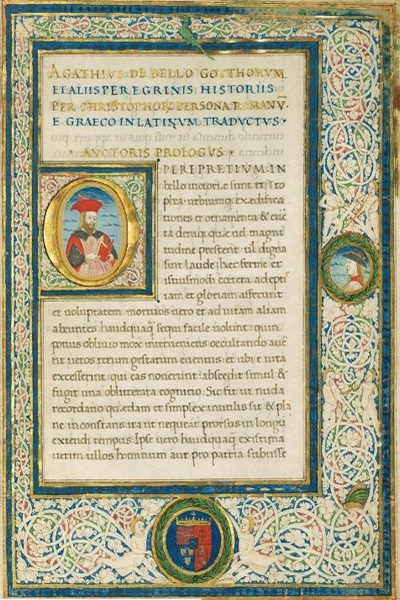 AGATHIVS DE BELLO GOTHORVM
ET ALIIS PEREGRINIS HISTORIIS
PER CHRISTOPHORVM PERSONAM ROMANV
E GRAECO IN LATINVM TRADVCTVS
AVCTORIS PROLOGVS
PEREPRETIVM IN
bello uictoriæ sunt et tro
phea: urbiumque exædifica
tiones et ornamenta & cunc
ta denique quæ uel magni
tudine prestent: uel digna
sint laude: hæc ferme et
istiusmodi cœtera adepti
tam et gloriam afferunt
et uoluptatem. mortuos uero et ad uitam aliam
abeuntes haudquaquam sequi facile uolunt: quin
potius obliuio mox interueniens occultando auer
tit ueros rerum gestarum euentus: et ubi e uita
excesserint qui eas nouerint: abscedit simul &
fugit una obliterata cognitio. Sic fit ut nuda
recordatio quædam et simplex inutilis sit & pla
ne inconstans: ita ut nequeat prorsus in longum
extendi tempus. Ipse uero haudquaquam existima
uerim ullos hominum aut pro patria subisse